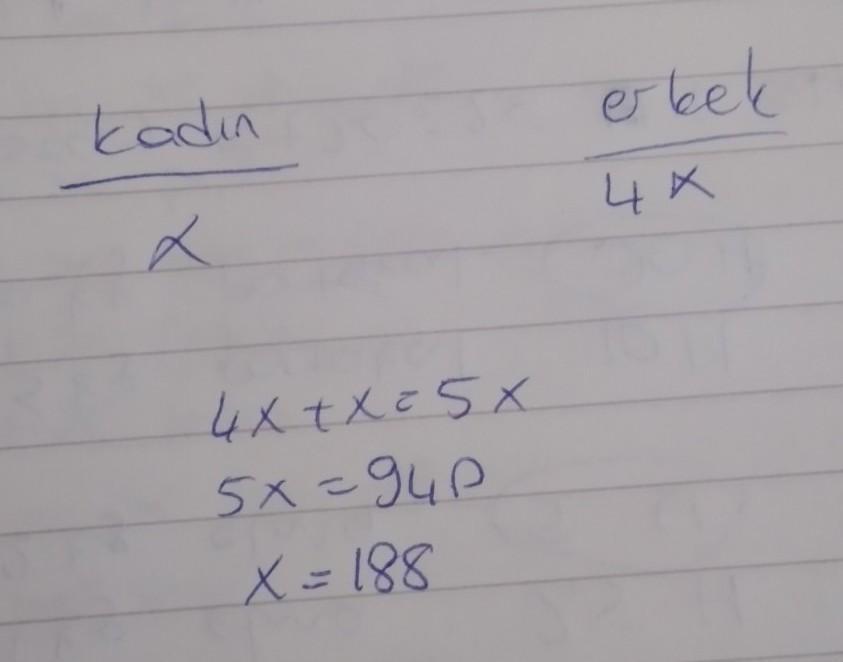 kadın erkek
x 4x
4x+x=5x
5x=940
x=188